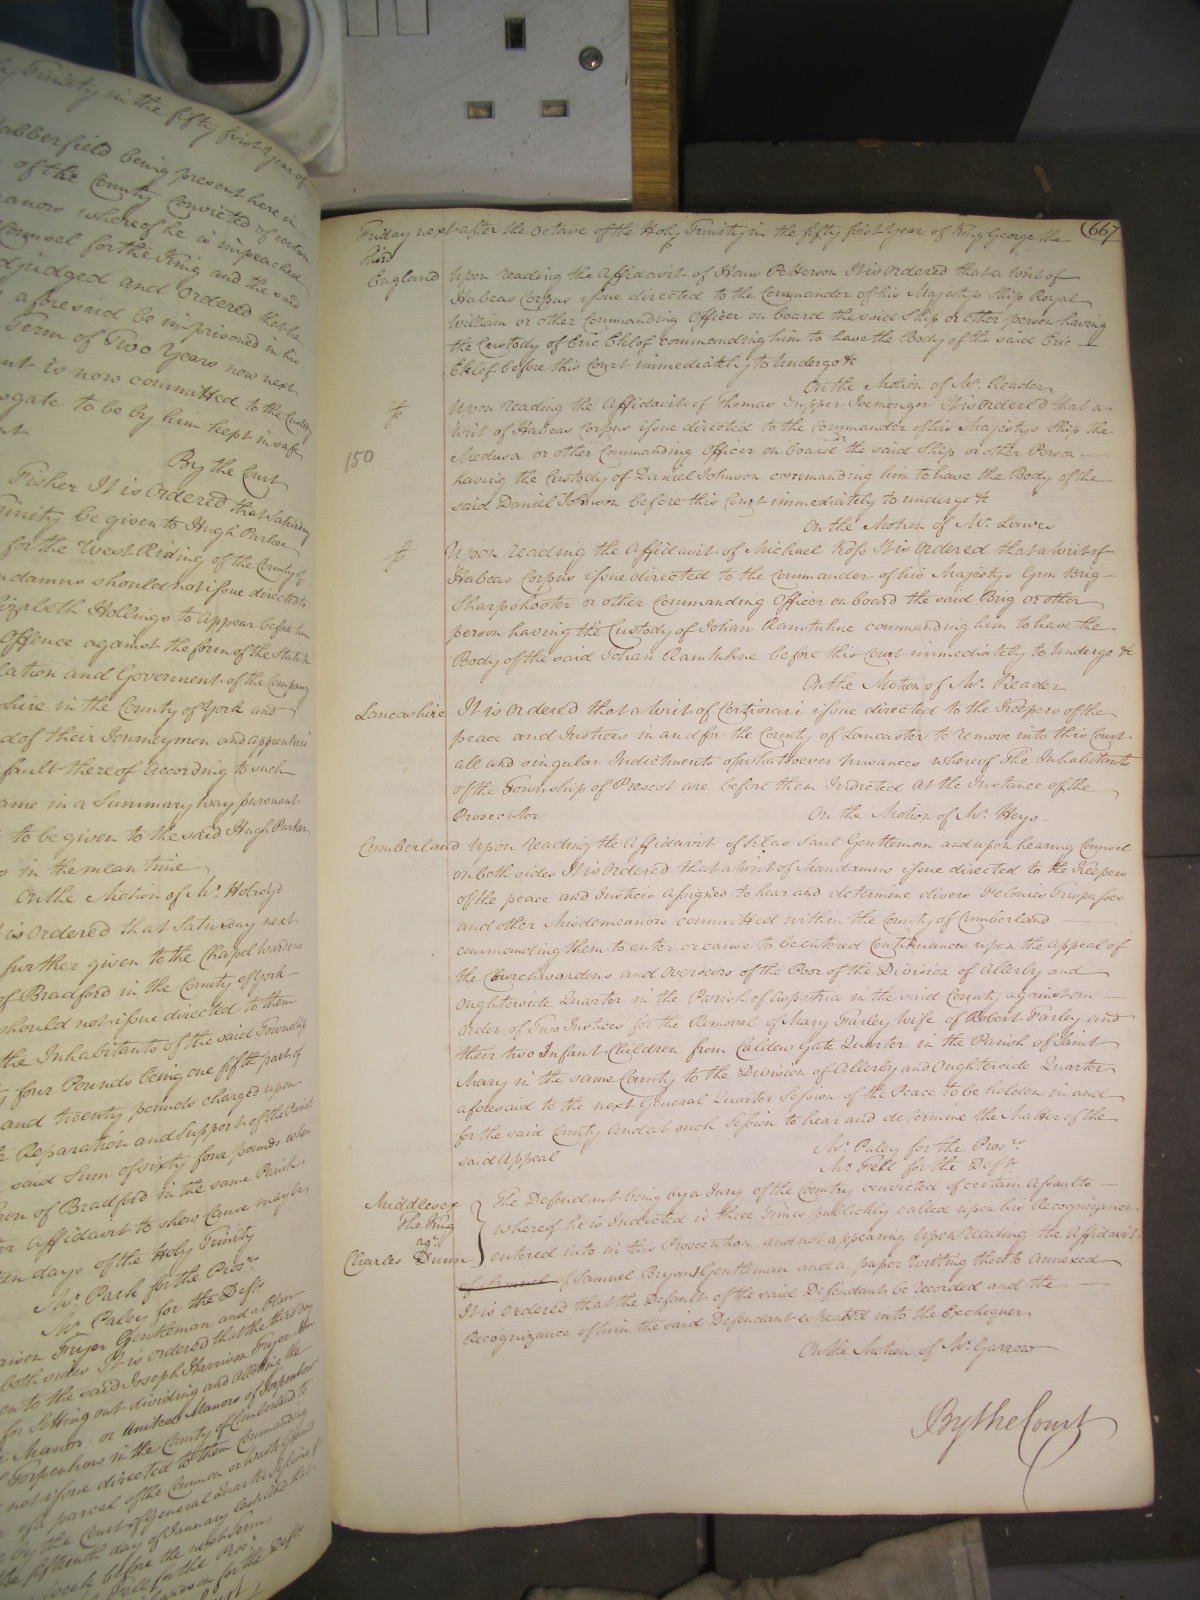 ly Trinity in the fifty first year of
Habberfield being present here in
of the County Convicted of certain
eanors whereof he is impeached
Counsel for the King and the said
djudged and Ordered that he
aforesaid be imprisoned in his
Term of Two Years now next
nt is now committed to the Custody
wgate to be by him kept in safe
By the Court
Fisher It is Ordered that Saturday
rinity be given to Hugh Parker
for the West Riding of the County of
ndamus should not issue directed to
lizabeth Hollings to Appear before him
Offence against the form of the Statute
lation and Goverment of the Company
shire in the County of York and
d of their Journeymen and apprentices
fault thereof According to such
ame in a Summary way pursuant
to be given to the said Hugh Parker
s in the mean time
On the Motion of Mr. Holroyd
t is Ordered that Saturday next
further given to the Chapel wardens
of Bradford in the County of York
should not issue directed to them
the Inhabitants of the said Township
four Pounds being one fifth part of
and twenty pounds charged upon
e Reparation and Support of the Parish
said Sum of sixty four pounds when
ion of Bradford in the same Parish
Affidavit to shew Cause may be
ten days of the Holy Trinity
Mr. Park for the Pros.r
Mr. Paley for the Deft.
rison Fryer Gentleman and a Plan
both sides It is ordered that the third day
en to the said Joseph Harrison Fryer
for Setting out dividing and Allotting the
Manor or United Manors of Torpenhow
Torpenhow in the County of Cumberland to
not issue directed to them Commanding
of a parcel of the Common or Waste Ground
by the Court of General Quarter Sessions
the fifteenth day of January last And that
week before the next Term
for the Pros.r
for the Deft.
Friday next after the Octave of the Holy Trinity in the fifty first Year of King George the (667
third
England Upon reading the Affidavit of Hans Petterson It is ordered that a Writ of
Habeas Corpus issue directed to the Commander of his Majestys Ship Royal
William or other Commanding Officer on board the said Ship or other person having
the Custody of Eric Eklof commanding him to have the Body of the said Eric
Eklof before this Court immediately to undergo &c
On the Motion of Mr. Reader
Upon reading the Affidavit of Thomas Tupper Iremonger It is Ordered that a
Writ of Habeas Corpus issue directed to the Commander of his Majestys Ship the
150 Medusa or other Commanding Officer on board the said Ship or other Person
having the Custody of Daniel Johnson commanding him to have the Body of the
said Daniel Johnson before this Court immediately to undergo &c
On the Motion of Mr. Lawes
Upon reading the Affidavit of Michael Ross It is Ordered that a Writ of
Habeas Corpus issue directed to the Commander of his Majestys Gun Brig
Sharpshooter or other Commanding Officer on board the said Brig or other
person having the Custody of Johan Ramtuhne commanding him to have the
Body of the said Johan Ramtuhne before this Court immediately to undergo &c
On the Motion of Mr. Reader
Lancashire It is Ordered that a Writ of Certiorari issue directed to the Keepers of the
peace and Justices in and for the County of Lancaster to remove into this Court
all and singular Indictments of whatsoever nusances whereof The Inhabitants
of the Township of Prescot are before them Indicted At the Instance of the
Prosecutor On the Motion of Mr. Heys
Cumberland Upon reading the Affidavit of Silas Saul Gentleman and upon hearing Counsel
on both sides It is ordered that a Writ of Mandamus issue directed to the Keepers
of the peace and Justices Assigned to hear and determine divers Felonies Trespasses
and other Misdemeanors committed within the County of Cumberland
commanding them to enter or cause to be entered Continuances upon the Appeal of
the Churchwardens and Overseers of the Poor of the Division of Allerby and
Oughterside Quarter in the Parish of Aspatria in the said County against an
Order of Two Justices for the Removal of Mary Farley wife of Robert Farley and
their two Infant Children from Caldew Gate Quarter in the Parish of Saint
Mary in the same County to the Division of Allerby and Oughterside Quarter
aforesaid to the next General Quarter Session of the Peace to be holden in and
for the said County And at such Session to hear and determine the Matter of the
said Appeal Mr. Paley for the Pros.r
Mr. Tell for the Deft.
Middlesex The Defendant being by a Jury of the Country convicted of certain Assaults
The King whereof he is Indicted is three times Publickly called upon his Recognizance
ag.t entered into in this Prosecution and not appearing Upon reading the Affidavit
Charles Dunn of Samuel of Samuel Bryant Gentleman and a paper Writing thereto Annexed
It is Ordered that the Default of the said Defendant be recorded and the
Recognizance of him the said Defendant estreated into the Exchequer
On the Motion of Mr. Garrow
By the Court